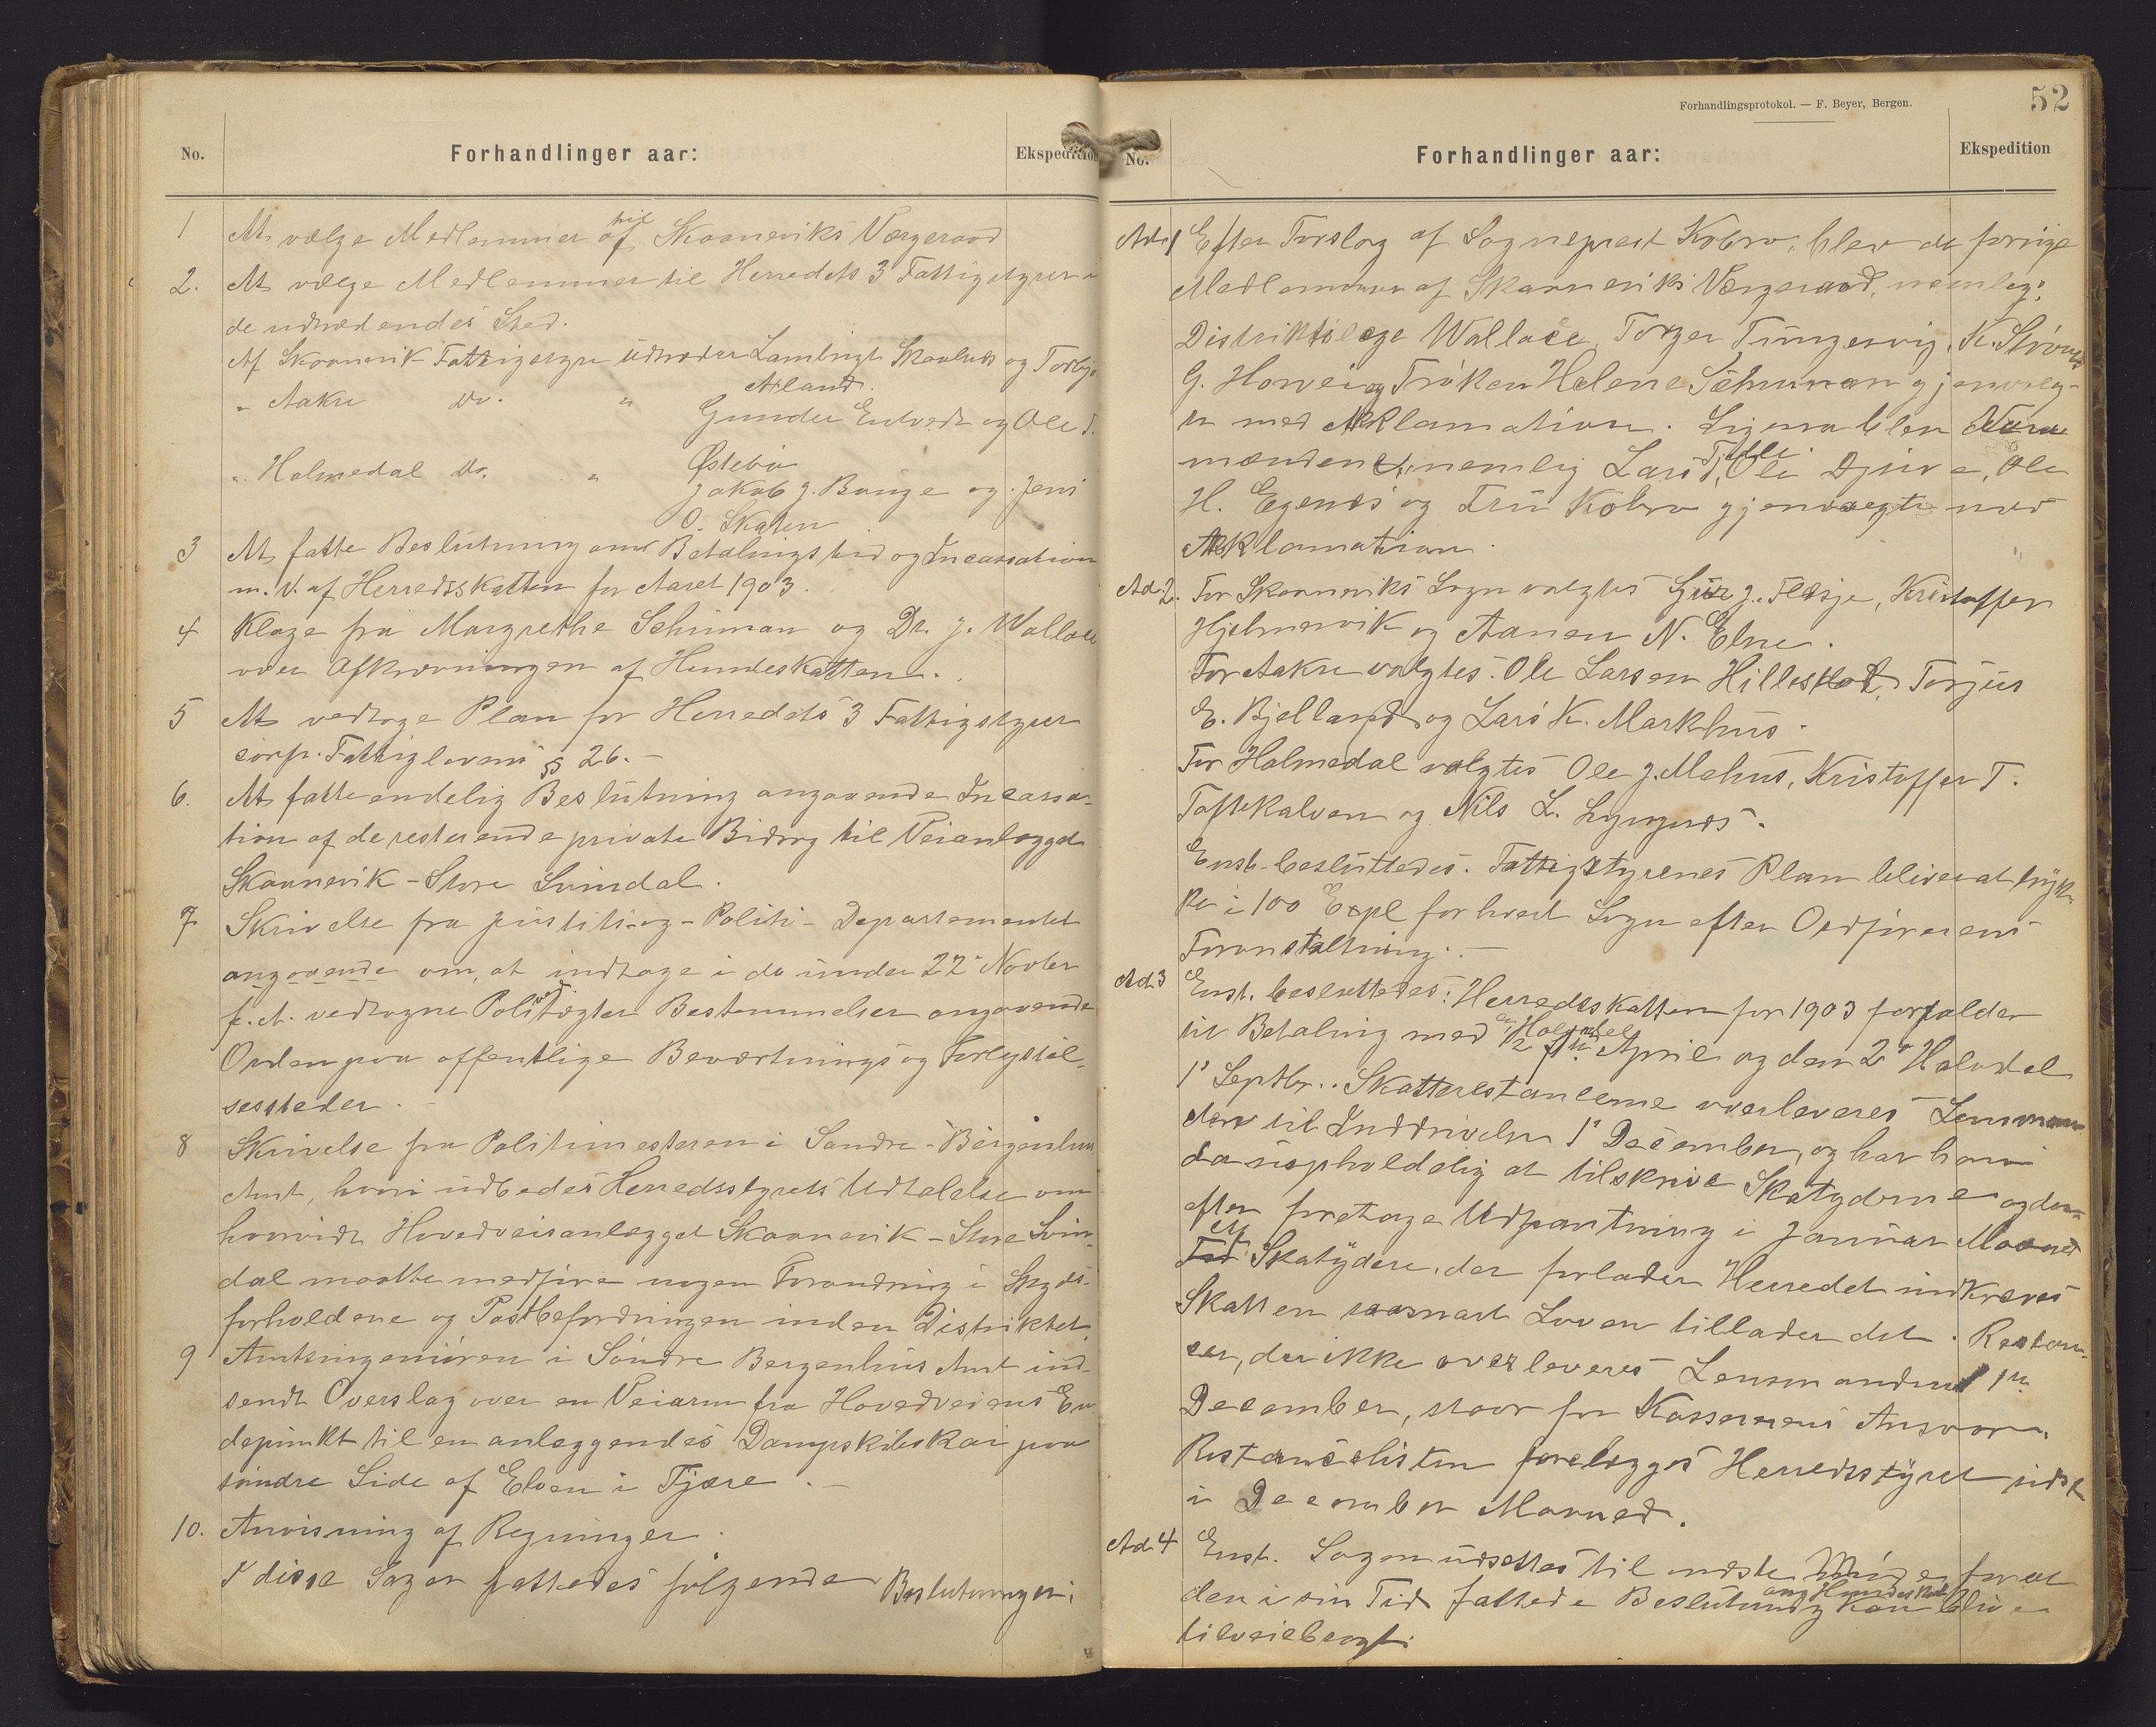 No. Forhandlinger aar: Ekspedition
1 At vælge Medlemmer af til Skaaneviks Værgeraad
2. At vælge Medlemmer til Herredets 3 Fattigstyrer i
de udtrædendes Sted.
Af Skaanevik Fattigstyre udtræder Lambrigt Skaalnes og Torbjø
Arland.
" Aakre Do. " Gunder Entvedt og Ole J.
Østebø
" Holmedal Do. " Jakob J. Bauge og Jens
O. Skaten
3 At fatte Beslutning om Betalingstid og Incassation
m. V. af Herredsskatten for Aaret 1903.
4 Klage fra Margrethe Schuman og Dr. J. Wallace
over Afkrævningen af Hundeskatten.
5 At vedtage Plan for Herredets 3 Fattigstyrer
cørf. Fattiglovens § 26.-
6. At fatte endelig Beslutning angaaende Incassa-
tion af de resterende private Bidrag til Veianlægget
Skaanevik - Store Svindal.
7 Skrivelse fra Justits- og- Politi- Departementet
angaaende om, at indtage i de under 22' Novbr
f. A. vedtagne Politivedtægter Bestemmelser angaaende
Orden paa offentlige Beværtnings og Forlystel-
sessteder.-
8 Skrivelse fra Politimesteren i Søndre-Bergenhus
Amt, hvori udbedes Herredsstyrets Udtalelse om
hvorvidt Hovedveisanlægget Skaanevik - Store Svin-
dal maatte medføre nogen Forandring i Skyds-
forholdene og Postbefordringen inden Distriktet.
9 Amtsingeniøren i Søndre Bergenhus Amt ind-
sendt Overslag over en Veiarm fra Hovedveiens En-
depunkt til en anlæggendes Dampskibskai paa
søndre Side af Elven i Fjære.-
10. Anvisning af Regninger.
I disse Sager fattedes følgende Beslutninger:
Forhandlingsprotokol. — F. Beyer, Bergen. 52
No. Forhandlinger aar: Ekspedition
Ad.1 Efter Forslag af Sogneprest Kobro, blev de forrige
Medlemmer af Skaaneviks Værgeraad, nemlig:
Distriktslæge Wallace, Torger Tungesvig, K. Strømnes
G. Horvei og Frøken Helene Schuman gjenvalg-
te med Akklamation. Ligesaa blev
mændene, nemlig Lars T. Ole Djuve, Ole
H. Egenes og Fru Kobro gjenvalgte med
Akklamation.
Ad.2. For Skaaneviks Sogn valgtes J. Flesje, Kristoffer
Hjelmervik og Aanen N. Ebne.
For Aakre valgtes: Ole Larsen Hilleskot, Torjus
E. Bjelland og Lars K. Markhus.
For Holmedal valgtes Ole J. Mehus, Kristoffer T.
Toftekalven og Nils L. Lyngnes.
Enst. besluttedes: Fattigstyrenes Plan bliver at tryk-
ke i 100 Expl for hvert Sogn efter Ordførerens
Foranstaltning.-
Ad.3 Enst. besluttedes: Herredsskatten for 1903 forfalder
til Betaling med en Halvdel 1ste April og den 2' Halvdel
1' Septbr. Skatterestancerne overleveres Lensman-
den til Inddrivelse 1' December, og har han
da uopholdelig at tilskrive Skatyderne og der-
efter foretage Udpantning i Januar Maaned
Skatydere, der forlader Herredet indkræves
Skatten saasnart Loven tillader det. Restan-
cer, der ikke overleveres Lensmanden 1ste
December, staar for Kassererens Ansvar.
Restancelisten forelægges Herredsstyret sidst
i December Maaned.
Ad.4 Enst. Sagen udsættes til næste Møde, forat
den i sin Tid fattede Beslutning ang Hundeskat kan blive
tilveiebragt.